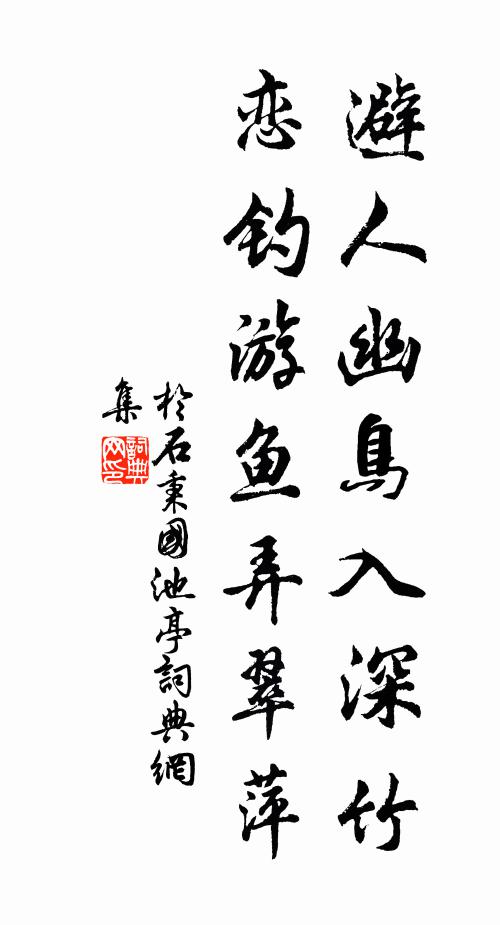 避人幽鳥入深竹
恋钓游鱼弄翠萍
於石秉國池亭詞典網
集
詞典
网印